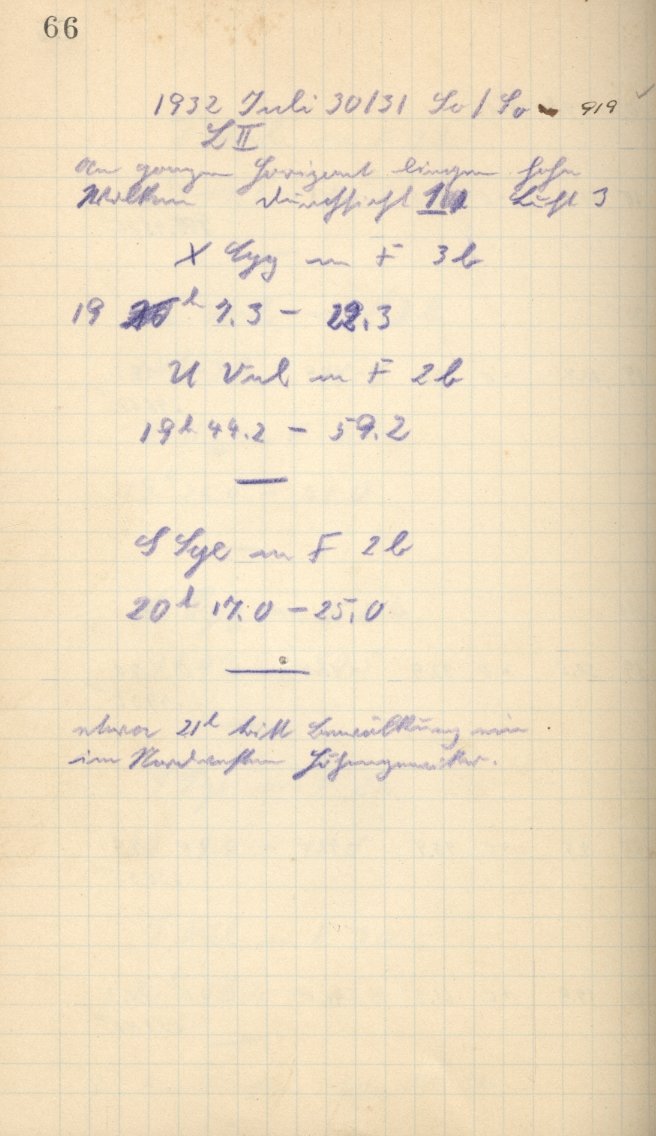 66
1932 Juli 30/31 So/So 919
L II
am ganzen Horizont liegen hohe
Wolken Durchsicht 1 Luft 3
X Cyg m F 3 b
19 h 7.3 - 22.3
U Vul m F 2 b
19h 44.2 - 59.2
S Sge m F 2 b
20h 17.0 - 25.0
etwa 21h tritt Bewölkung ein
im Nordwesten